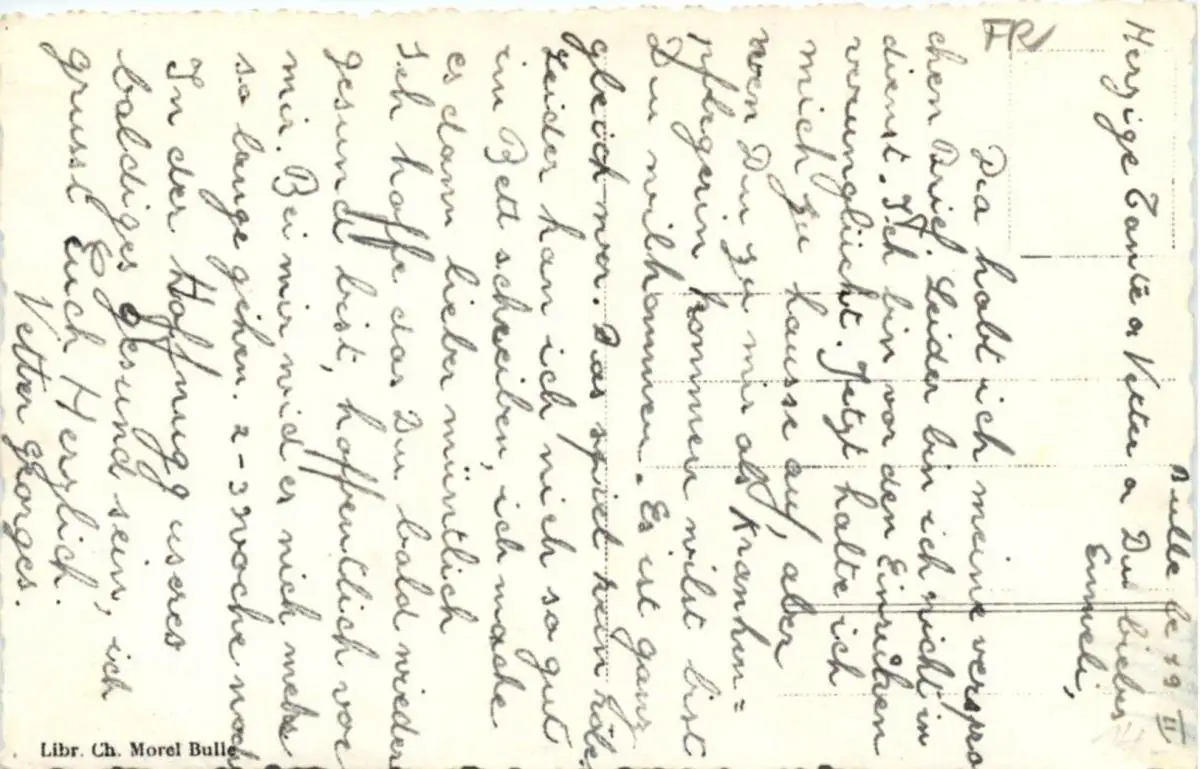 Bulle le 19 II
Herzige Tante u Vetter u Du liebes
Emmeli,
Da habt ich meine verspro
chen Brief. Leider bin ich nicht im
dienst. Ich bin vor den Einrüken
verunglückt. Jetzt halte ich
mich zu hausse auf, aber
wen Du zu mir als Kranken=
pflegerin kommen wilst bist
Du wilkommen. Es ist ganz
gleich wer. Das spielt kein röle.
Leider kan ich mich nich so gut
im Bett schreiben, ich mache
es dann lieber müntlich
Ich hoffe das Du bald wieder
gesund bist, hoffentlich vor
mir. Bei mir wird es nich mehr
so lange gehen. 2-3 woche noch
In der Hoffnung useres
baldiges gesund sein, ich
grusst Euch Herzlich.
Vetter Georges.
FR
Libr. Ch. Morel Bulle